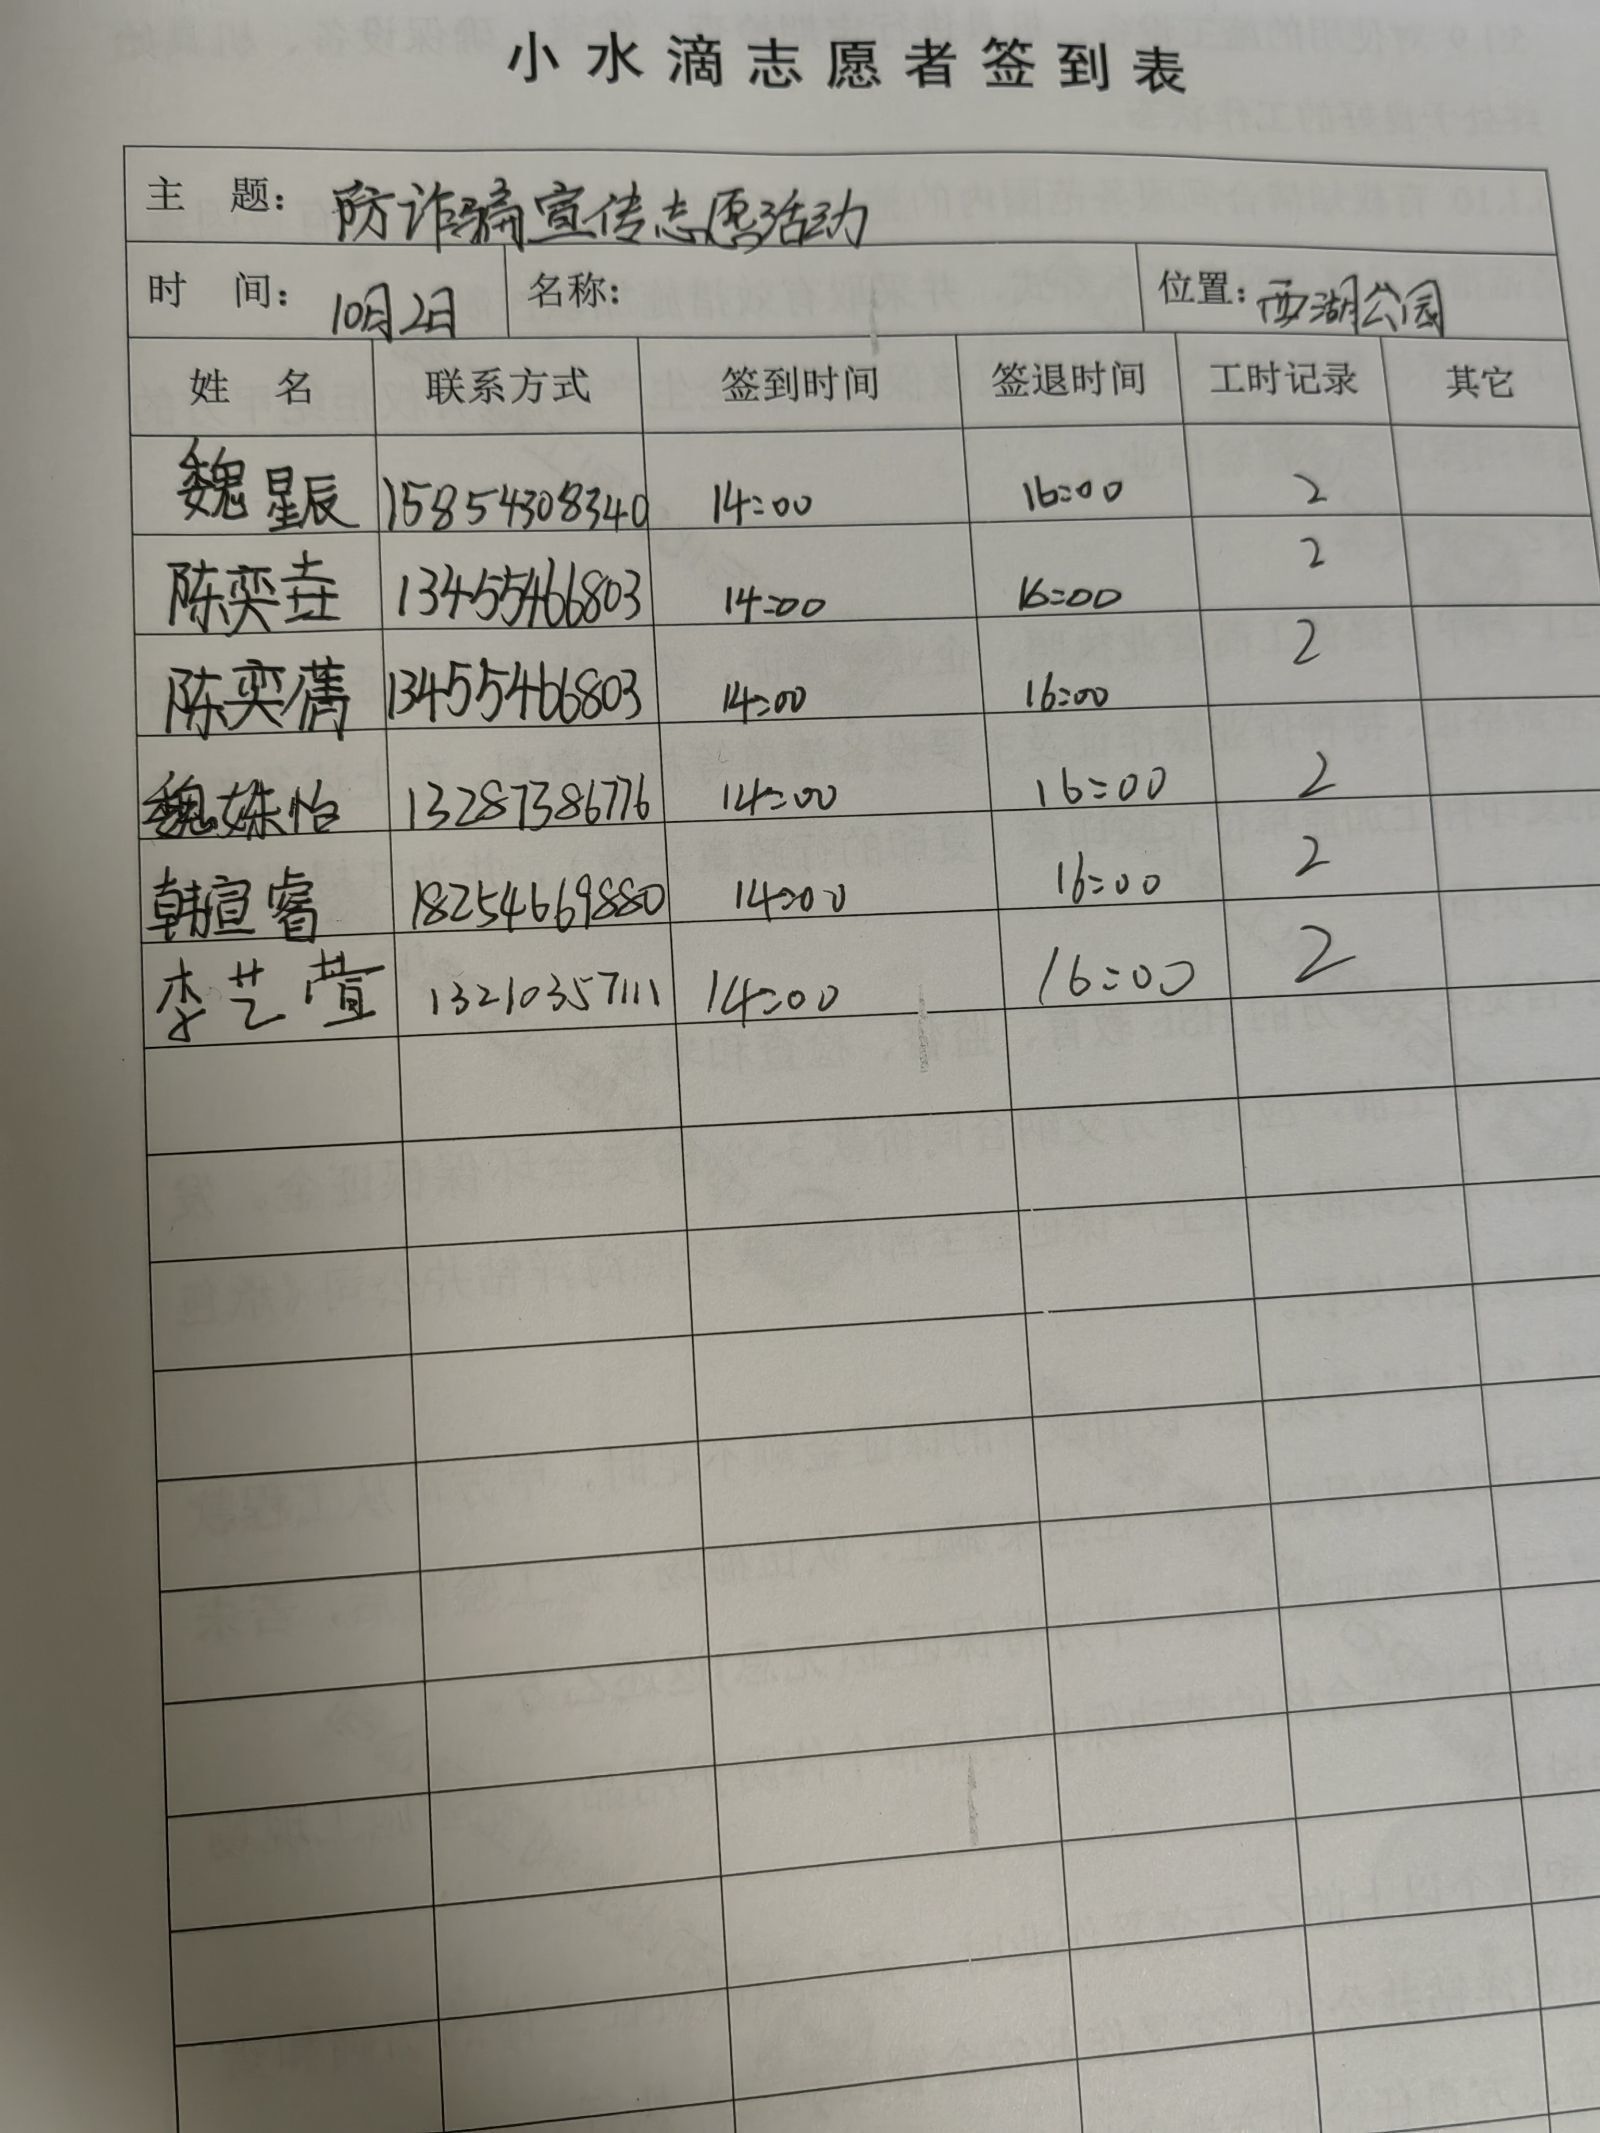 小水滴志愿者签到表
主 题： 防诈骗宣传志愿活动
时 间： 10月2日 名称： 位置：西湖公园
姓 名 联系方式 签到时间 签退时间 工时记录 其它
魏星辰 15854308340 14:00 16:00 2
陈奕垚 13455466803 14:00 16:00 2
陈奕 13455466803 14:00 16:00 2
魏姝怡 13287386776 14:00 16:00 2
韩宣睿 18254669880 14:00 16:00 2
李艺萱 13210357111 14:00 16:00 2